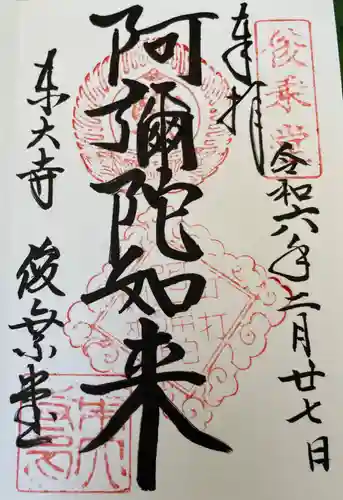 奉拝
俊乗堂
令和六年二月廿七日
阿彌陀如来
東大寺
俊乗堂